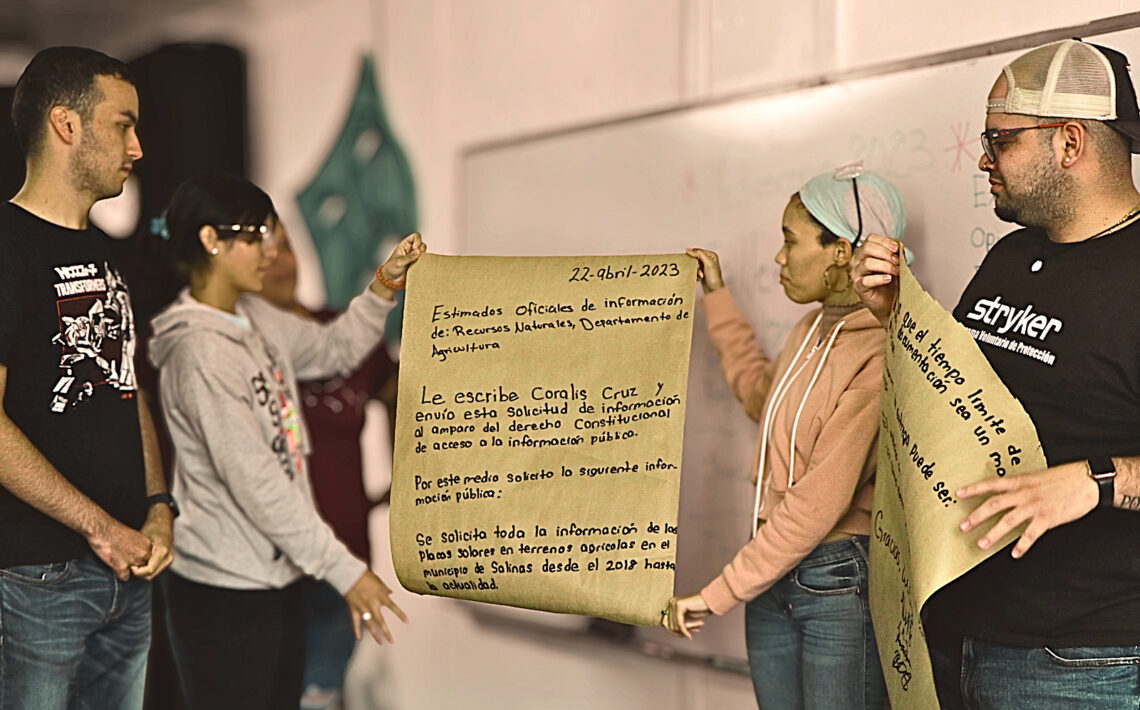 22-abril-2023
Estimados Oficiales de información
de: Recursos Naturales, Departamento de
Agricultura
Le escribe Coralis Cruz y
envío esta solicitud de información
al amparo del derecho Constitucional
de acceso a la información pública.
Por este medio solicito la siguiente infor-
mación pública:
Se solicita toda la información de las
placas solares en terrenos agrícolas en el
municipio de Salinas desde el 2018 hasta
la actualidad.
que el tiempo límite de
documentación sea un
puede ser:
Gracias
TRANSFORMERS
stryker
Voluntario de Protección
2023